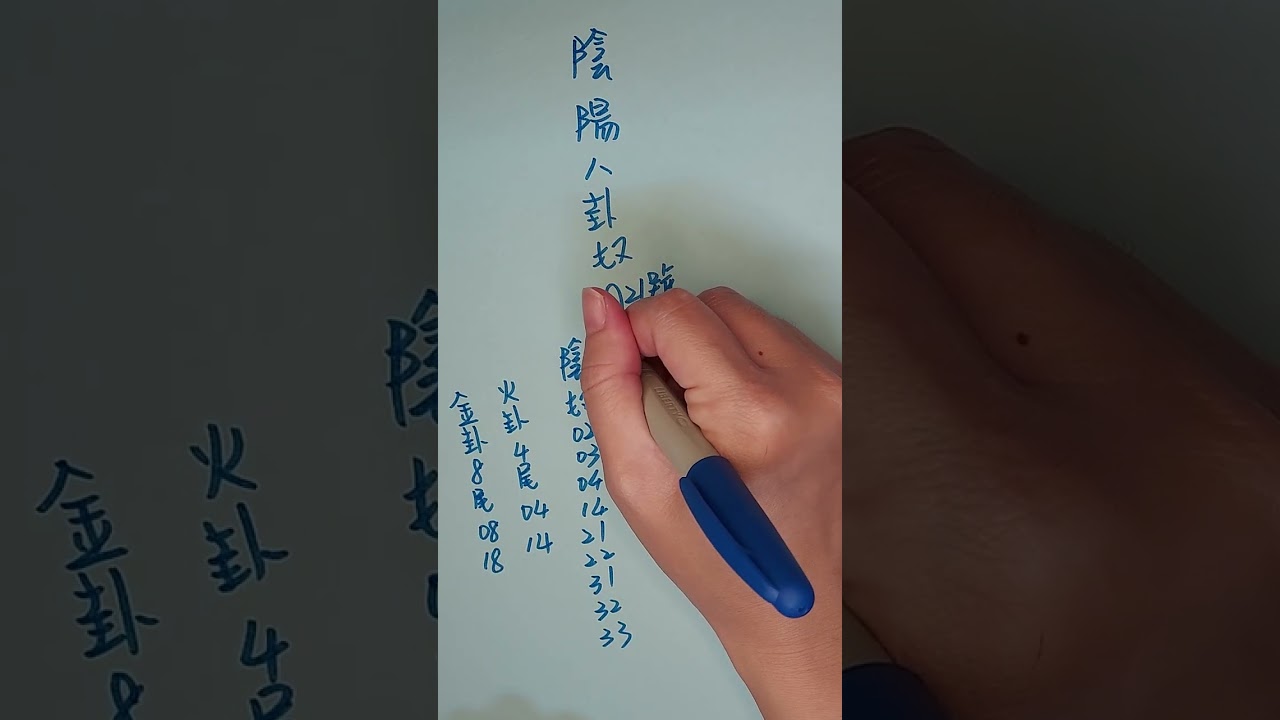 陰陽八卦
021號
陰
02
03
04
14
21
22
31
32
33
火卦4尾04
14
金卦8尾08
18